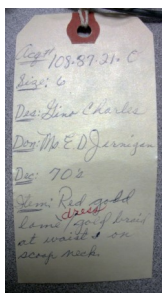 Acq# 108.87.21. C
Size: 6
Des: Gino Charles
Don: Ms E.D. Jernigan
Dec: 70's
Item: Red gold
dress
lamé / gold braid
at waist & on
scoop neck.